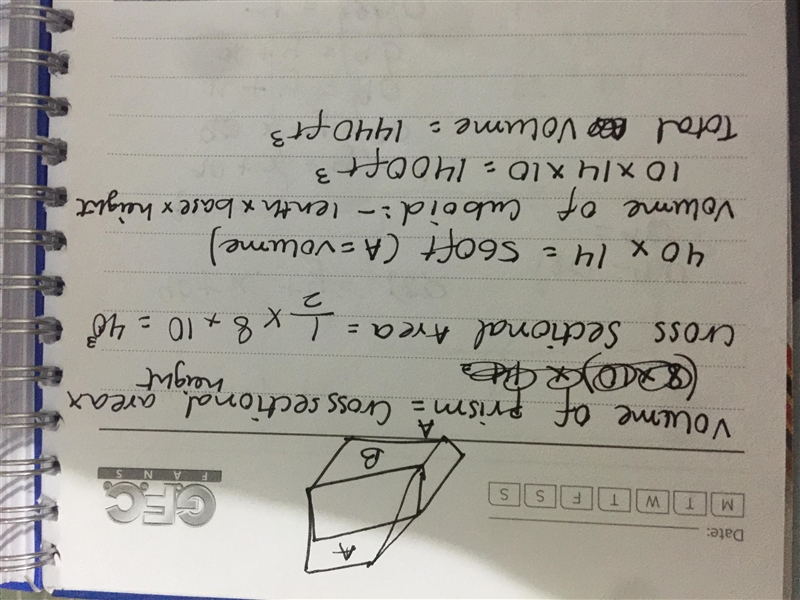 Date:
M T W T F S S
G.F.C.
FANS
A
B
A
Volume of prism = Cross sectional area x
height
Cross Sectional Area = 1/2 x 8 x 10 = 40
40 x 14 = 560ft (A = volume)
Volume of Cuboid:- lenth x base x height
10 x 14 x 10 = 1400ft³
Total Volume = 1440ft³